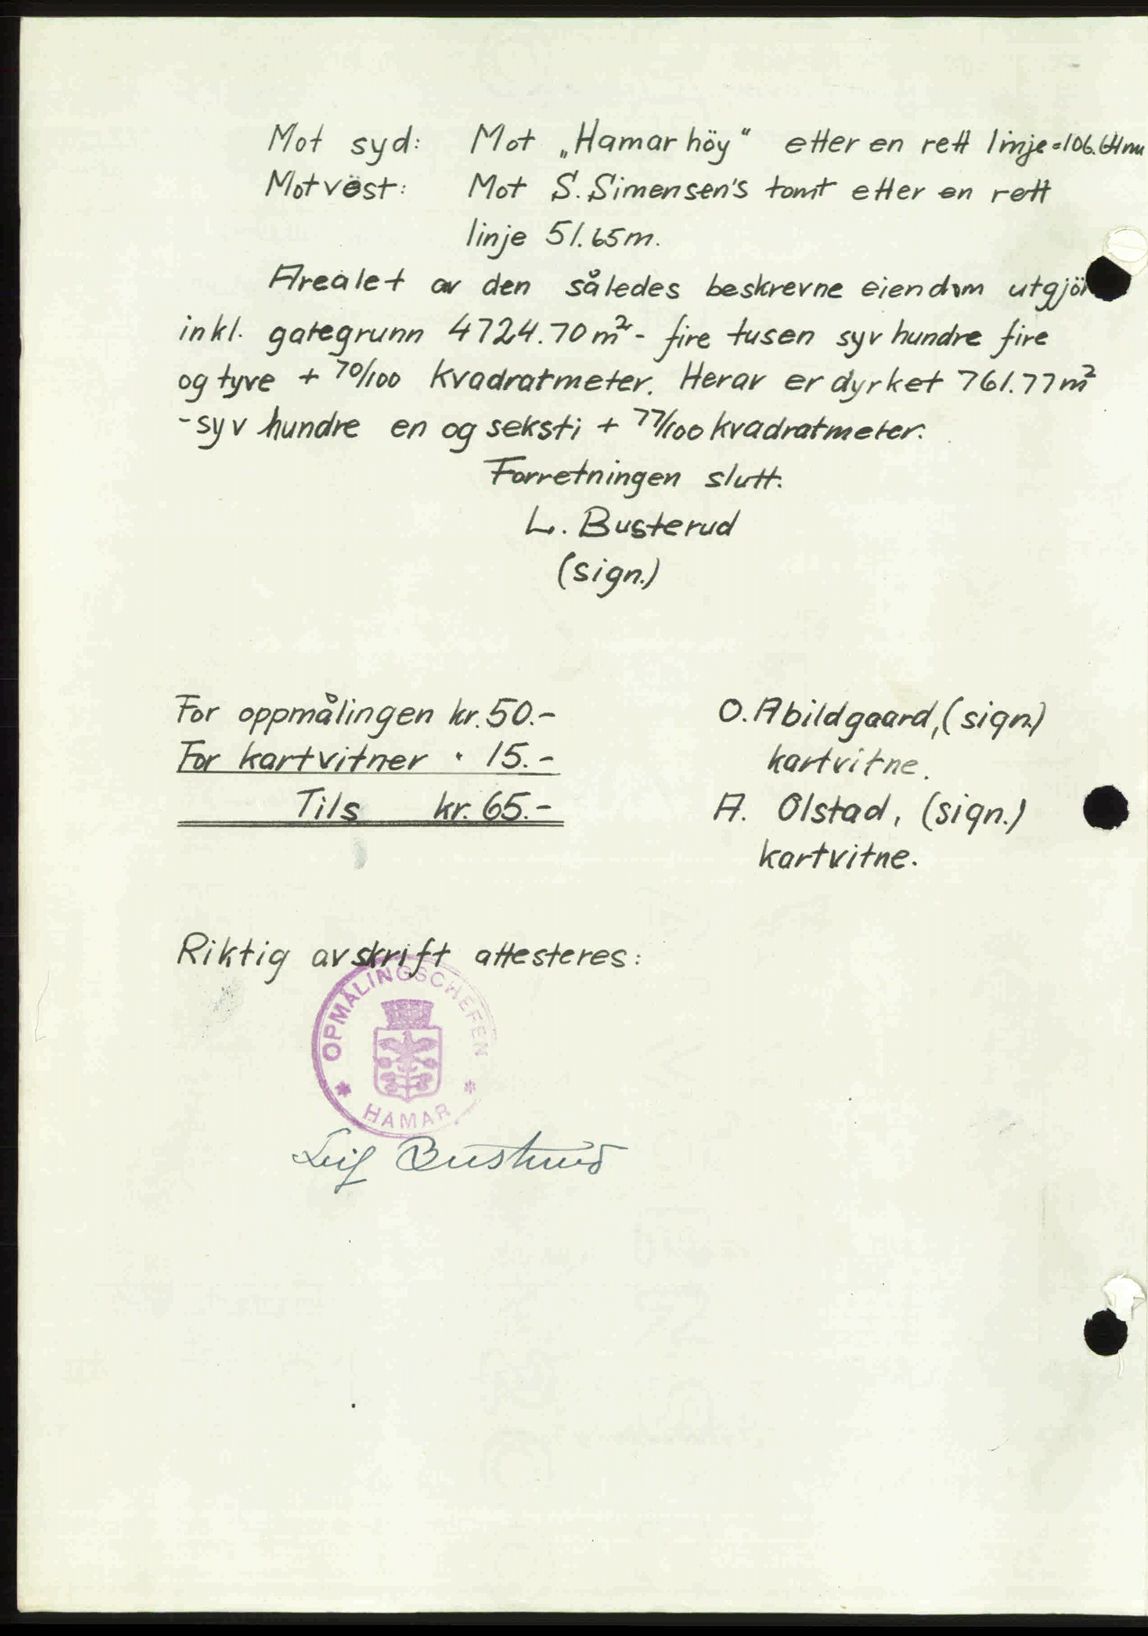 Mot syd: Mot „Hamar höy“ etter en rett linje =
Mot vest: Mot S. Simensen's tomt etter en rett
linje 51.65m.
Arealet av den således beskrevne eiendom utgjör
inkl. gategrunn 4724.70 m² - fire tusen syv hundre fire
og tyve + 70/100 kvadratmeter. Herav er dyrket 761.77 m²
- syv hundre en og seksti + 77/100 kvadratmeter.
Forretningen slutt.
L. Busterud
(sign.)
For oppmålingen kr. 50.-
For kartvitner " 15.-
Tils kr. 65.-
O. Abildgaard, (sign.)
kartvitne.
A. Olstad, (sign.)
kartvitne.
Riktig avskrift attesteres:
OPMÅLINGSCHEFEN
HAMAR
Leif Busterud